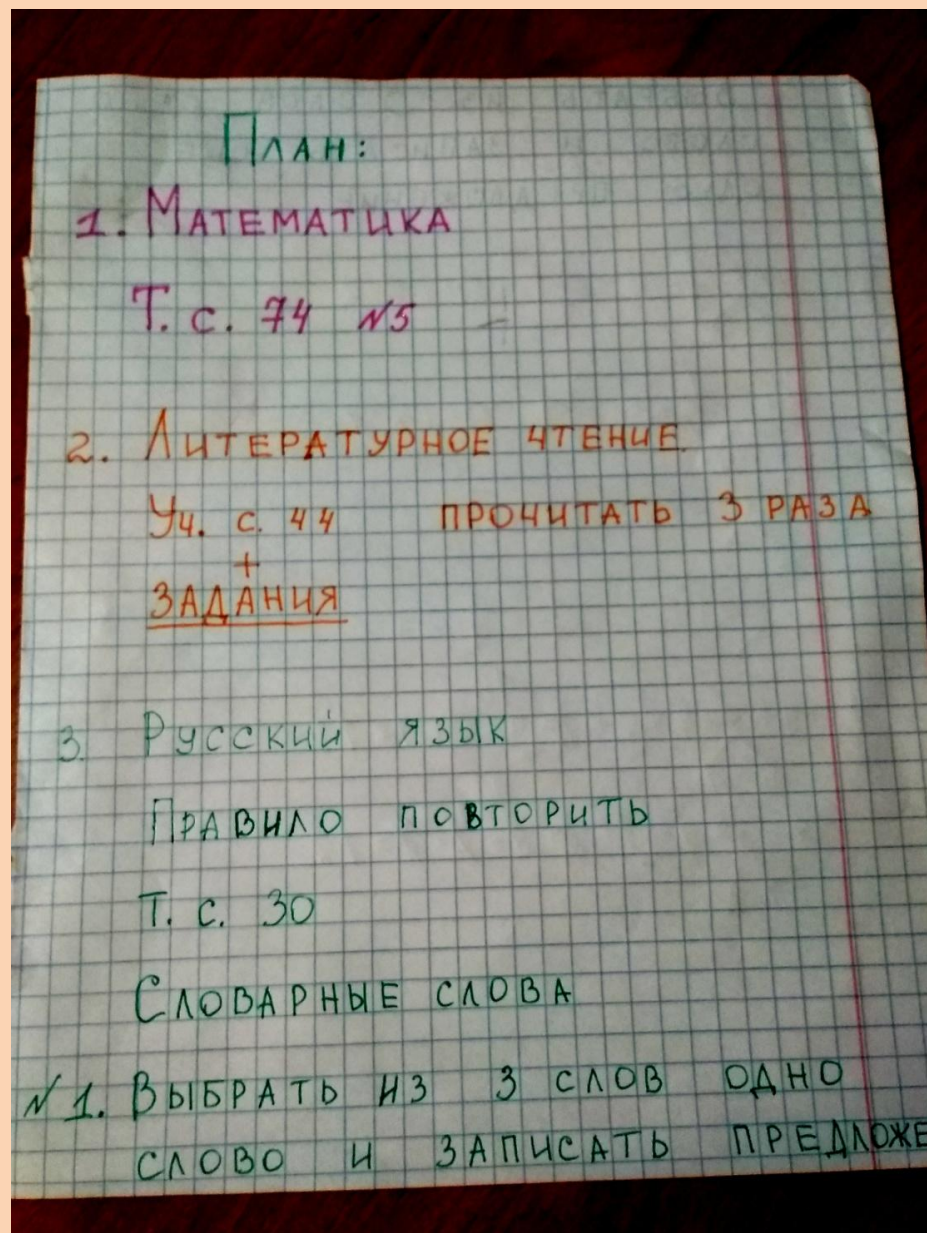 План:
1. Математика
Т. с. 74 №5
2. Литературное чтение.
Уч. с. 44 прочитать 3 раза
+
задания
3. Русский язык
Правило повторить
Т. с. 30
Словарные слова
№1. Выбрать из 3 слов одно
слово и записать предложе